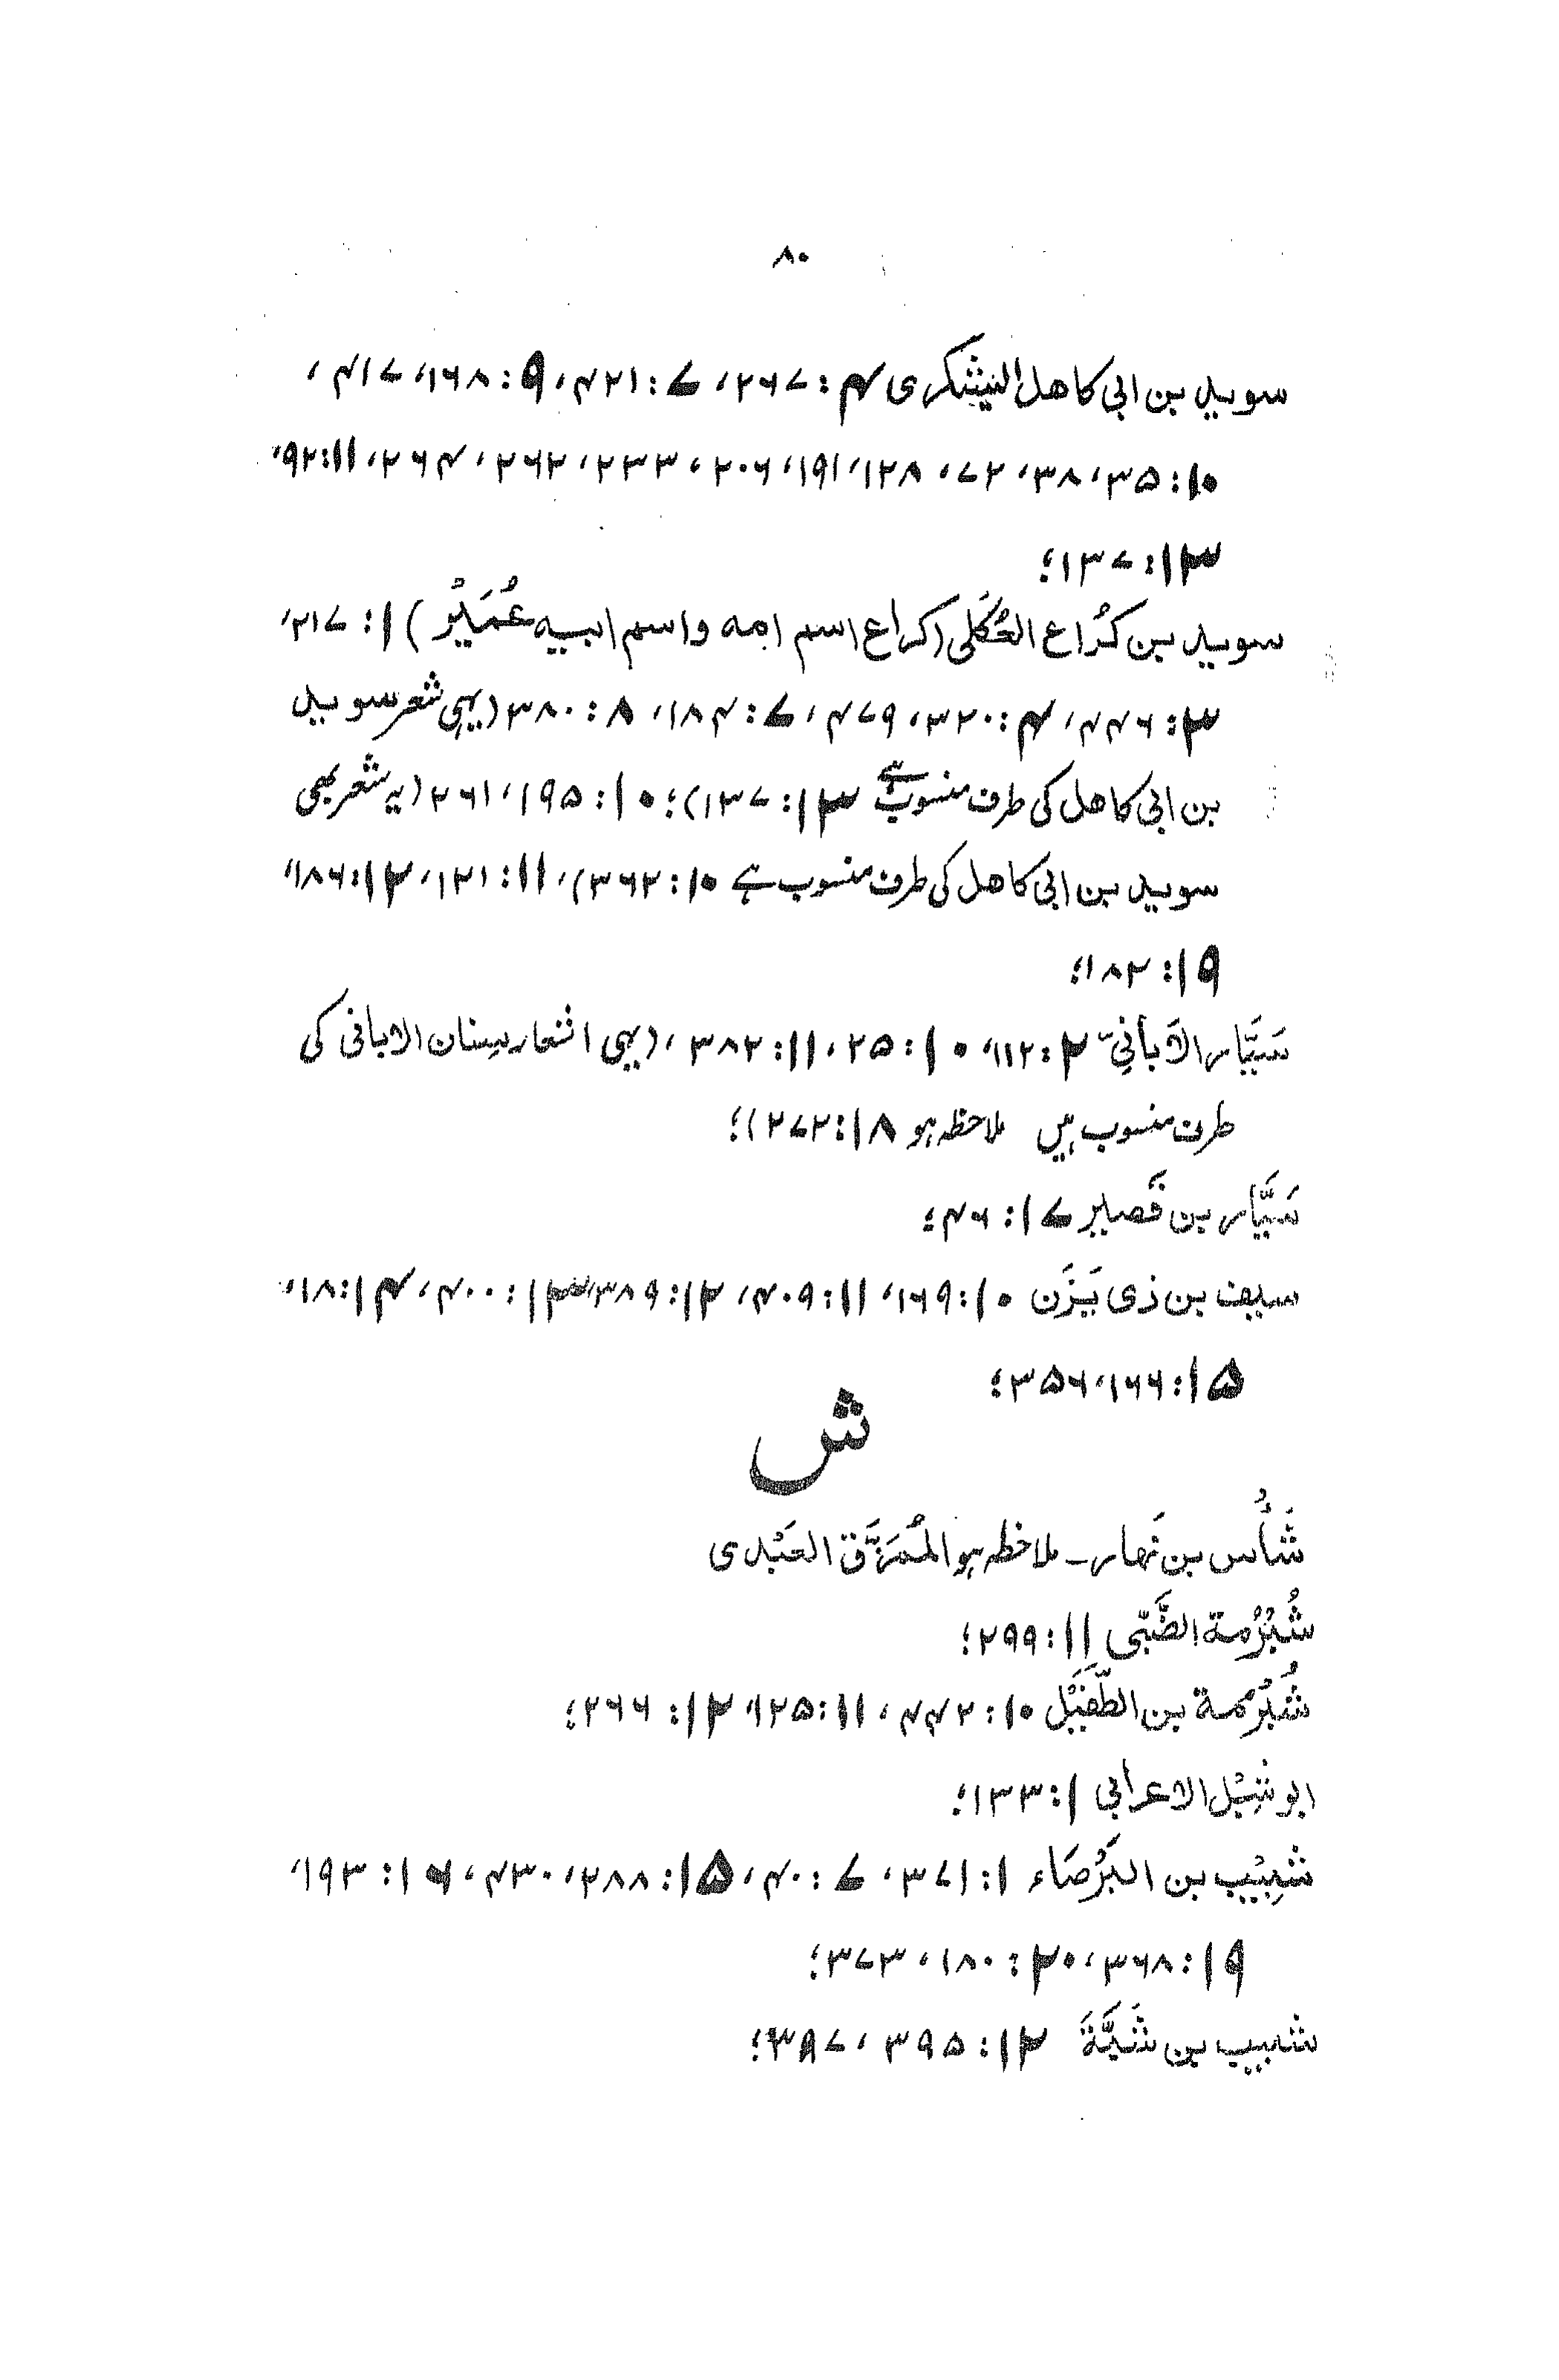 ۸۰
سوید بن ابی کاهل الیشکری ۴: ۲۶۷، ۷: ۴۲۱، ۹: ۱۶۸، ۴۱۷،
۱۰: ۳۵، ۳۸، ۷۲، ۱۲۸، ۱۹۱، ۲۰۶، ۲۳۳، ۲۶۲، ۲۶۴، ۱۱: ۹۲،
۱۳: ۱۳۷؛
سوید بن کُراع العُکَلی (کراع اسم امه واسم ابیه عُمَیْر) ۱: ۲۱۷،
۳: ۴۴۶، ۴: ۳۲۰، ۴۷۹، ۷: ۱۸۴، ۸: ۳۸۰ (یہی شعر سوید
بن ابی کاهل کی طرف منسوب ہے ۱۳: ۱۳۷)؛ ۱۰: ۱۹۵، ۲۶۱ (یہ شعر بھی
سوید بن ابی کاهل کی طرف منسوب ہے ۱۰: ۳۶۲)، ۱۱: ۱۲۱، ۱۲: ۱۸۶،
۱۹: ۱۸۲؛
سَیَّار الاَبانِیّ ۲: ۱۱۲، ۱۰: ۲۵، ۱۱: ۳۸۲، (یہی اشعار سنان الابانی کی
طرف منسوب ہیں ملاحظہ ہو ۱۸: ۲۷۲)؛
سَیَّار بن قَصیر ۱۷: ۴۶؛
سیف بن ذی یَزَن ۱۰: ۱۶۹، ۱۱: ۴۰۹، ۱۲: ۳۸۹، ۱۳: ۴۰۰، ۱۴: ۱۸،
۱۵: ۱۶۶، ۳۵۶؛
ش
شَأْس بن نَهار۔ ملاحظہ ہو المُمَزَّق العَبْدی
شُبْرُمة الضَّبّی ۱۱: ۲۹۹؛
شُبْرُمة بن الطُّفَیْل ۱۰: ۴۴۲، ۱۱: ۱۲۵، ۱۲: ۲۶۶؛
ابو شِبْل الاعرابی ۱: ۱۳۳؛
شَبِیْب بن البَرْصَاء ۱: ۳۷۱، ۷: ۴۰، ۱۵: ۲۸۸، ۴۳۰، ۱۶: ۱۹۳،
۱۹: ۳۶۸، ۲۰: ۱۸۰، ۳۷۳؛
شبیب بن شَیْبَةَ ۱۲: ۳۹۵، ۳۹۷؛